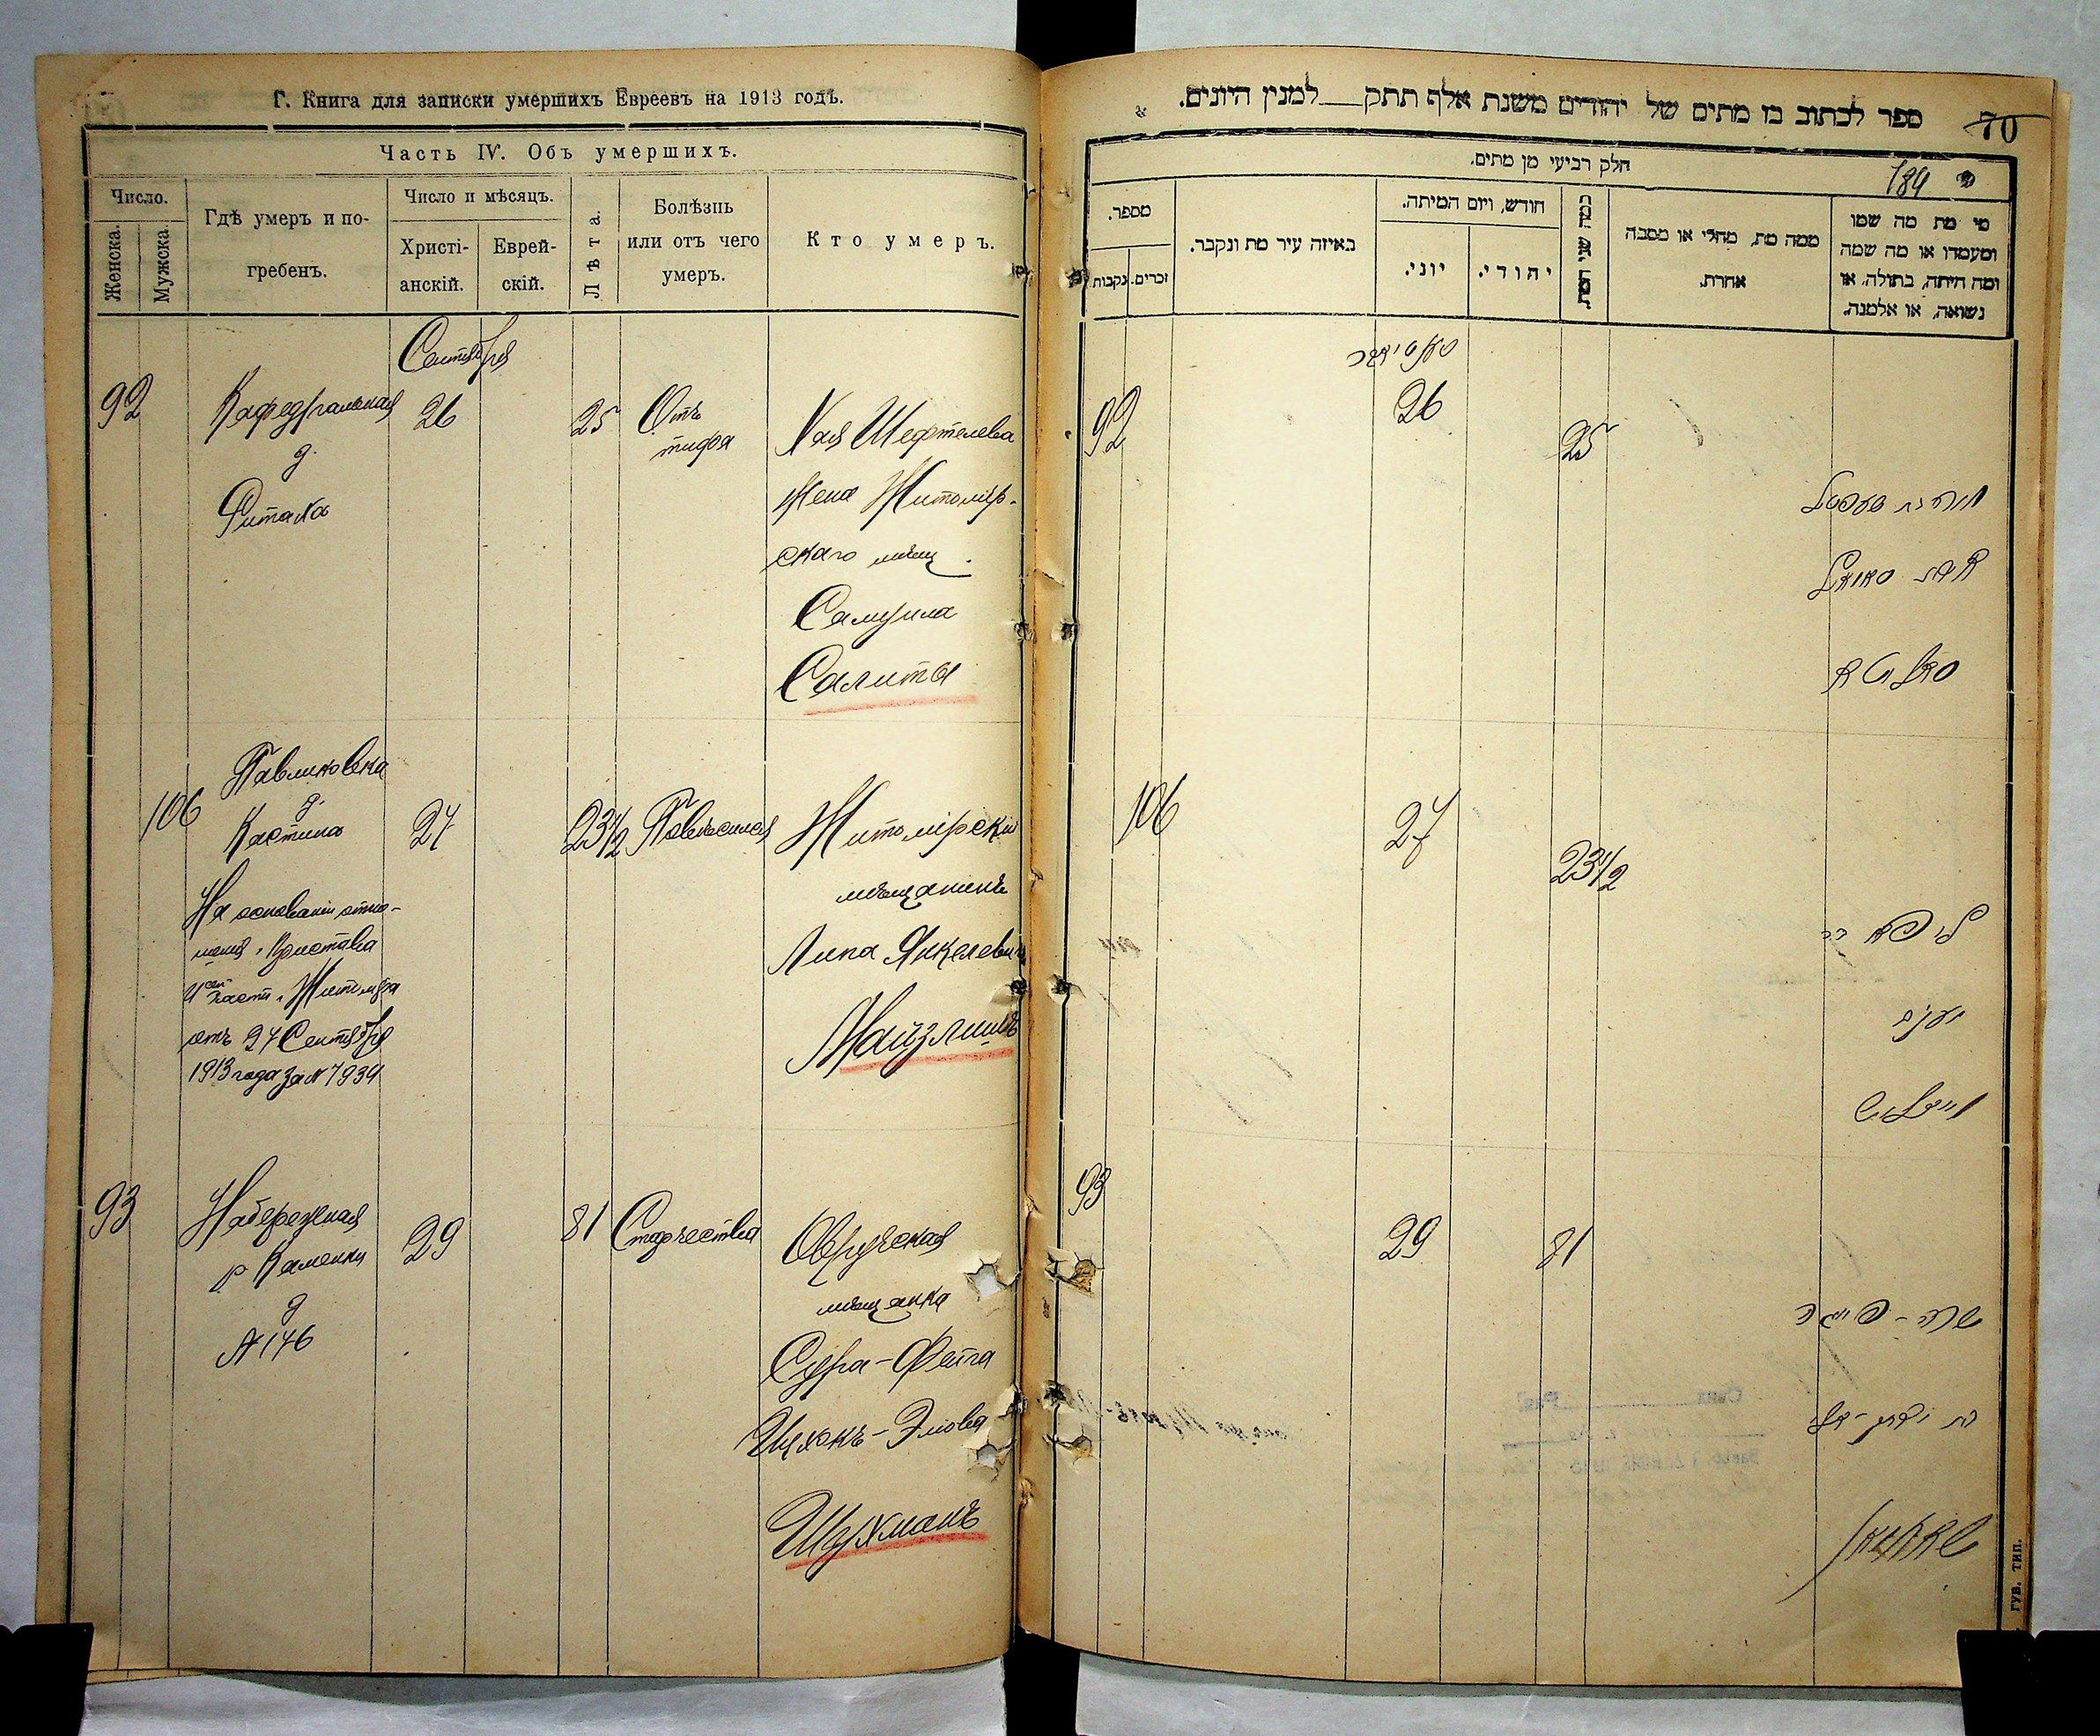 Г. Книга для записки умершихъ Евреевъ на 1913 годъ.
Часть IV. Объ умершихъ.
Число.
Женска.
Мужска.
Гдѣ умеръ и по-
гребенъ.
Число и мѣсяцъ.
Христі-
анскій.
Еврей-
скій.
Лѣта.
Болѣзнь
или отъ чего
умеръ.
Кто умеръ.
Сентября
92
Кафедральная
д.
Ритака
26
25
Отъ
тифа
Хая Шефтелева
жена Житомір-
скаго мѣщ.
Самуила
Салиты
106
Павликовка
д.
Кастина
На основаніи отно-
шенія Пристава
части г. Житоміра
отъ 27 Сентября
1913 года за № 7934
27
23 1/2
Повѣсился
Житомірскій
мѣщанинъ
Липа Янкелевичъ
Майзлишъ
93
Набережная
р. Каменки
д
№ 146
29
81
Старчества
Овручская
мѣщанка
Сура-Фейга
Ицхокъ-Элова
Шухманъ
ספר לכתוב בו מתים של יהודים משנת אלף תתק___למנין היונים.
70
189
חלק רביעי מן מתים.
מספר.
נקבות
זכרים.
באיזה עיר מת ונקבר.
חודש, ויום המיתה.
יוני.
יהודי.
כמה שני המת.
ממה מת, מחלי או מסבה
אחרת.
מי מת מה שמו
ומעמדו או מה שמה
ומה היתה, בתולה, או
נשואה, או אלמנה.
92
26
25
חיה בת שעפטל
אשת סמואל
סאליטא
106
27
23 1/2
ליפא בר
יעקב
מייזליש
93
29
81
שרה-פייגע
בת יצחק-אל
שוחמאן
ГУБ. ТИП.